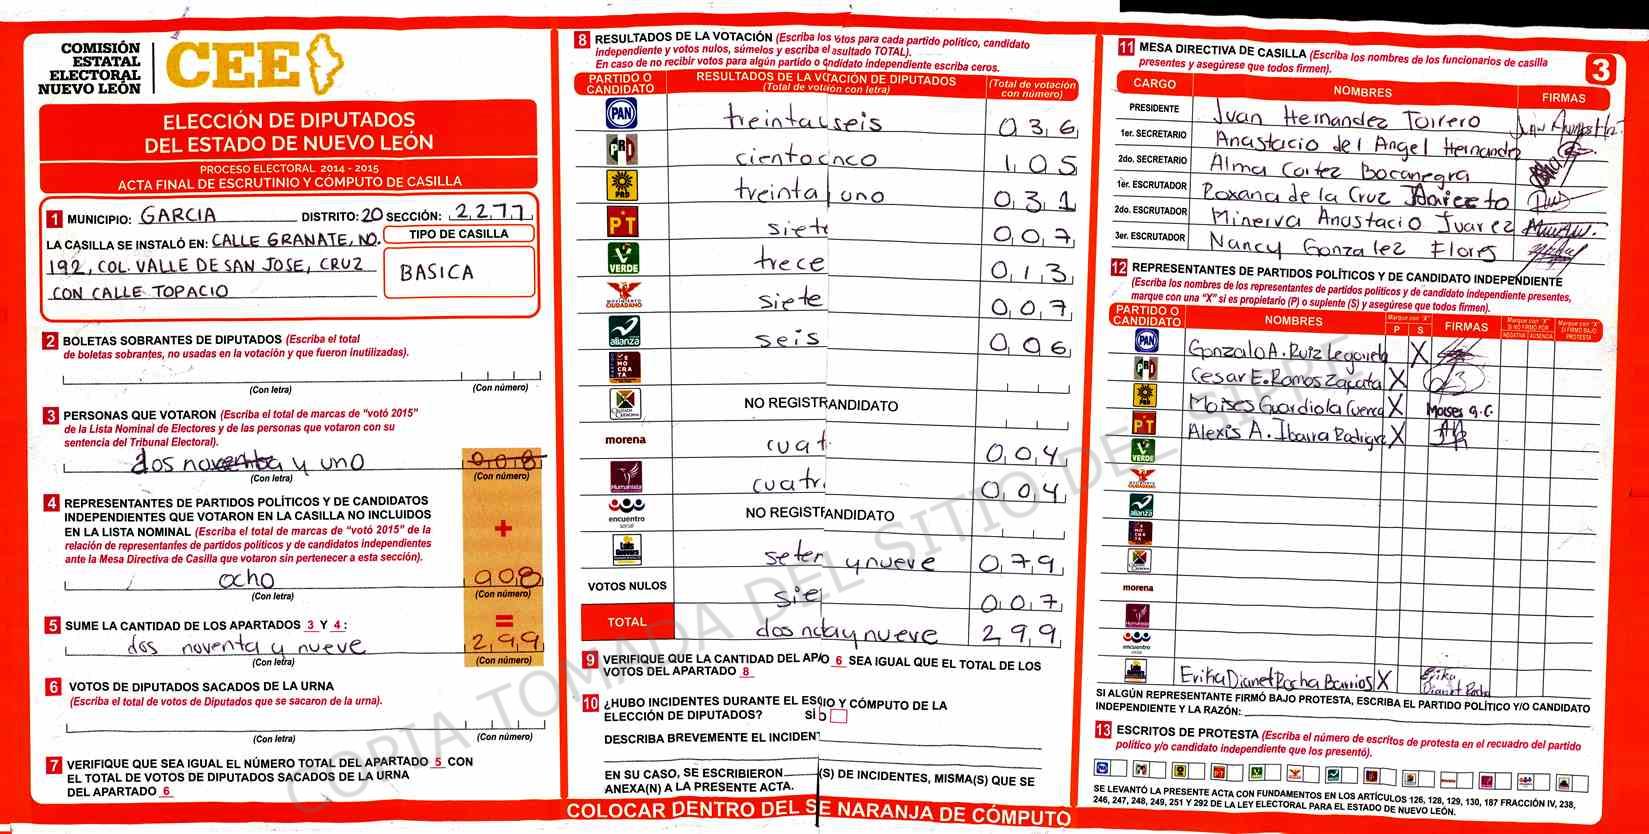 COMISIÓN
ESTATAL
ELECTORAL
NUEVO LEÓN
CEE
ELECCIÓN DE DIPUTADOS
DEL ESTADO DE NUEVO LEÓN
PROCESO ELECTORAL 2014 - 2015
ACTA FINAL DE ESCRUTINIO Y CÓMPUTO DE CASILLA
1 MUNICIPIO: GARCIA DISTRITO: 20 SECCIÓN: 2277
LA CASILLA SE INSTALÓ EN: CALLE GRANATE, NO.
192, COL. VALLE DE SAN JOSE, CRUZ
CON CALLE TOPACIO
TIPO DE CASILLA
BASICA
2 BOLETAS SOBRANTES DE DIPUTADOS (Escriba el total
de boletas sobrantes, no usadas en la votación y que fueron inutilizadas).
(Con letra) (Con número)
3 PERSONAS QUE VOTARON (Escriba el total de marcas de "votó 2015"
de la Lista Nominal de Electores y de las personas que votaron con su
sentencia del Tribunal Electoral).
dos noventa y uno 008
(Con letra) (Con número)
+
4 REPRESENTANTES DE PARTIDOS POLÍTICOS Y DE CANDIDATOS
INDEPENDIENTES QUE VOTARON EN LA CASILLA NO INCLUIDOS
EN LA LISTA NOMINAL (Escriba el total de marcas de "votó 2015" de la
relación de representantes de partidos políticos y de candidatos independientes
ante la Mesa Directiva de Casilla que votaron sin pertenecer a esta sección).
ocho 008
(Con letra) (Con número)
=
5 SUME LA CANTIDAD DE LOS APARTADOS 3 Y 4:
dos noventa y nueve 299
(Con letra) (Con número)
6 VOTOS DE DIPUTADOS SACADOS DE LA URNA
(Escriba el total de votos de Diputados que se sacaron de la urna).
(Con letra) (Con número)
7 VERIFIQUE QUE SEA IGUAL EL NÚMERO TOTAL DEL APARTADO 5 CON
EL TOTAL DE VOTOS DE DIPUTADOS SACADOS DE LA URNA
DEL APARTADO 6
8 RESULTADOS DE LA VOTACIÓN (Escriba los votos para cada partido político, candidato
independiente y votos nulos, súmelos y escriba el esultado TOTAL).
En caso de no recibir votos para algún partido o candidato independiente escriba ceros.
PARTIDO O
CANDIDATO
RESULTADOS DE LA VOTACIÓN DE DIPUTADOS
(Total de votación con letra)
(Total de votación
con número)
PAN treinta y seis 036
PRI ciento cinco 105
PRD treinta uno 031
PT siete 007
VERDE trece 013
MOVIMIENTO CIUDADANO siete 007
alianza seis 006
DEMOCRATA
NO REGISTR ANDIDATO
morena cuat 004
Humanista cuatr 004
encuentro social NO REGIST ANDIDATO
seten y nueve 079
VOTOS NULOS sie 007
TOTAL dos no a y nueve 299
9 VERIFIQUE QUE LA CANTIDAD DEL AP/O 6 SEA IGUAL QUE EL TOTAL DE LOS
VOTOS DEL APARTADO 8
10 ¿HUBO INCIDENTES DURANTE EL ESC IO Y CÓMPUTO DE LA
ELECCIÓN DE DIPUTADOS? SÍ
DESCRIBA BREVEMENTE EL INCIDEN
EN SU CASO, SE ESCRIBIERON (S) DE INCIDENTES, MISMA(S) QUE SE
ANEXA(N) A LA PRESENTE ACTA.
COLOCAR DENTRO DEL SE NARANJA DE CÓMPUTO
3
11 MESA DIRECTIVA DE CASILLA (Escriba los nombres de los funcionarios de casilla
presentes y asegúrese que todos firmen).
CARGO NOMBRES FIRMAS
PRESIDENTE Juan Hernandez Torrero
1er. SECRETARIO Anastacio del Angel Hernandez
2do. SECRETARIO Alma Cortez Bocanegra
1er. ESCRUTADOR Roxana de la Cruz
2do. ESCRUTADOR Minerva Anastacio Juarez
3er. ESCRUTADOR Nancy Gonzalez Flores
12 REPRESENTANTES DE PARTIDOS POLÍTICOS Y DE CANDIDATO INDEPENDIENTE
(Escriba los nombres de los representantes de partidos políticos y de candidato independiente presentes,
marque con una "X" si es propietario (P) o suplente (S) y asegúrese que todos firmen).
PARTIDO O
CANDIDATO
NOMBRES
Marque con "X"
P S
FIRMAS
Marque con "X"
SI NO FIRMÓ POR
NEGATIVA AUSENCIA
Marque con "X"
SI FIRMÓ BAJO
PROTESTA
PAN Gonzalo A. Ruiz Legorreta X
PRI Cesar E. Ramos Zapata X
PRD Moises Guardiola Cuenca X Moises G.C.
PT Alexis A. Ibarra Rodrigz X
VERDE
alianza
morena
encuentro
Erika Dianet Rocha Barrios X Erika
Dianet Rocha
SI ALGÚN REPRESENTANTE FIRMÓ BAJO PROTESTA, ESCRIBA EL PARTIDO POLÍTICO Y/O CANDIDATO
INDEPENDIENTE Y LA RAZÓN:
13 ESCRITOS DE PROTESTA (Escriba el número de escritos de protesta en el recuadro del partido
político y/o candidato independiente que los presentó).
SE LEVANTÓ LA PRESENTE ACTA CON FUNDAMENTOS EN LOS ARTÍCULOS 126, 128, 129, 130, 187 FRACCIÓN IV, 238,
246, 247, 248, 249, 251 Y 292 DE LA LEY ELECTORAL PARA EL ESTADO DE NUEVO LEÓN.
COPIA TOMADA DEL SITIO DEL SIPPE